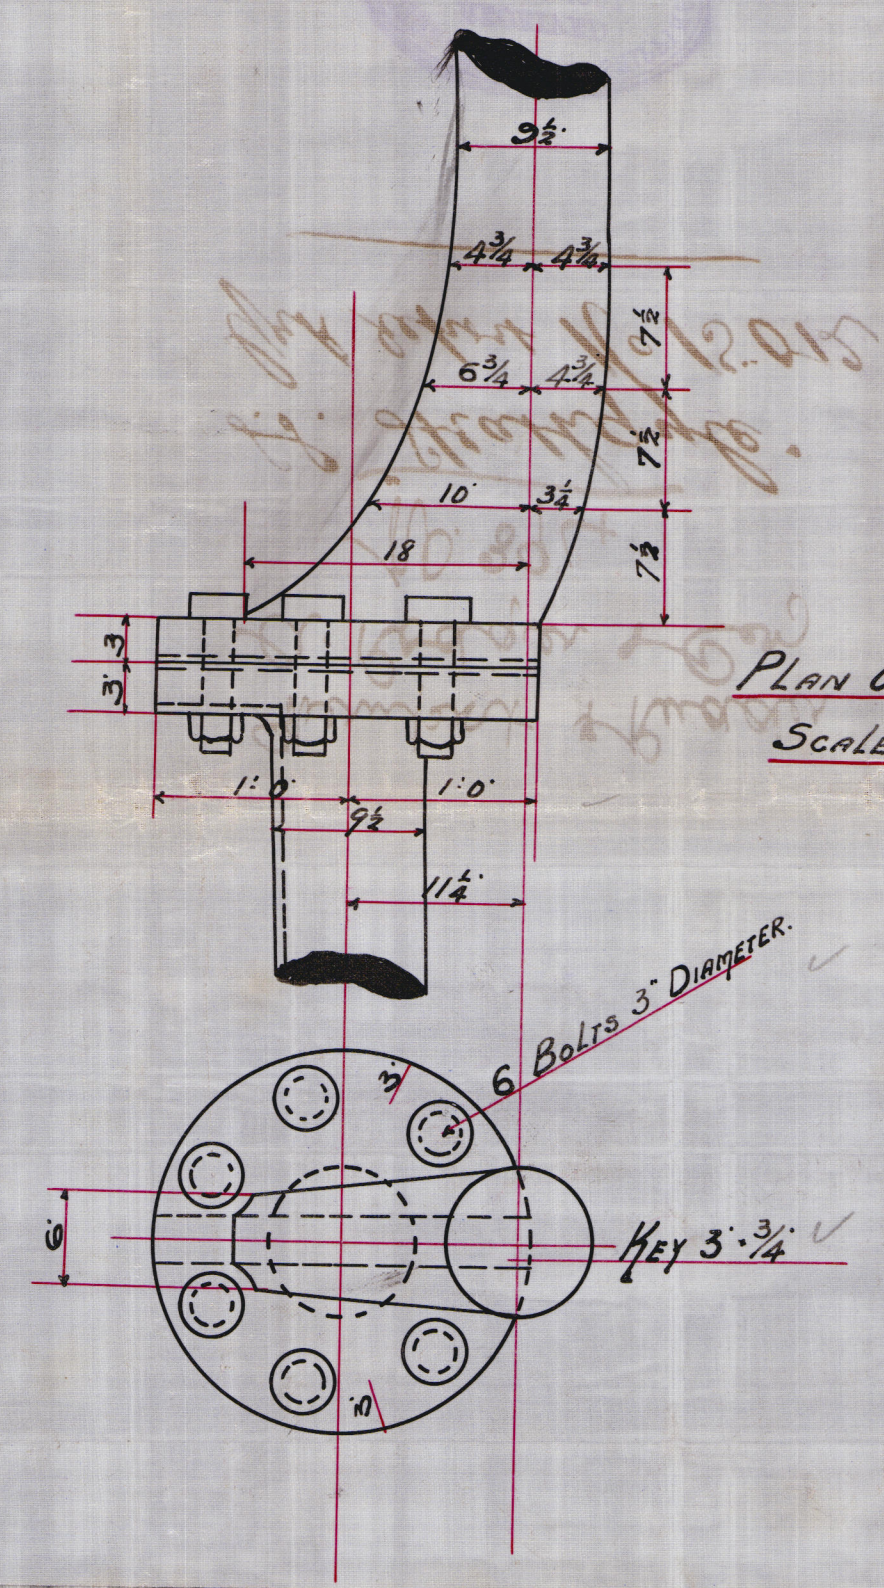 9½
4¾ 4¾
7½
6¾ 4¾
7½
10 3¼
7½
18
3
3
PLAN O
SCALE
1' 0" 1' 0"
9½
11¼
6 BOLTS 3" DIAMETER.
3"
6"
KEY 3" · ¾"
3"